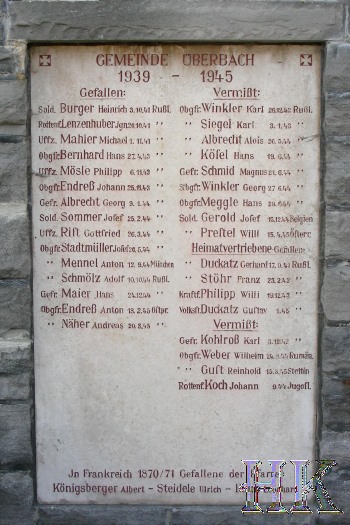 GEMEINDE ÜBERBACH
1939 - 1945
Gefallen:
Sold. Burger Heinrich 3.10.41 Rußl.
Rottenf. Lenzenhuber Jgn. 28.10.41 "
Uffz. Mahler Michael 1.11.41 "
Obgfr. Bernhard Hans 27.4.43 "
Uffz. Mösle Philipp 6.11.43 "
Obgfr. Endreß Johann 25.10.43 "
Gefr. Albrecht Georg 9.1.44 "
Sold. Sommer Josef 25.2.44 "
Uffz. Rift Gottfried 26.3.44 "
Obgfr. Stadtmüller Josef 26.6.44 "
" Mennel Anton 12.9.44 München
" Schmölz Adolf 10.10.44 Rußl.
Gefr. Maier Hans 24.12.44 "
Obgfr. Endreß Anton 18.2.45 Ostpr.
" Näher Andreas 20.3.45 "
Vermißt:
Obgfr. Winkler Karl 26.12.42 Rußl.
" Siegel Karl 3.1.43 "
" Albrecht Alois 26.6.44 "
" Köfel Hans 19.6.44 "
Gefr. Schmid Magnus 21.6.44 "
Stbgfr. Winkler Georg 27.6.44 "
Obgfr. Meggle Hans 29.6.44 "
Sold. Gerold Josef 15.12.44 Belgien
" Preftel Willi 15.4.45 Österr.
Heimatvertriebene-Gefallene:
" Duckatz Gerhard 17.9.41 Rußl.
" Stöhr Franz 23.2.42 "
Kraftf. Philipp Willi 19.12.42 "
Volksft. Duckatz Gustav 1.45 "
Vermißt:
Gefr. Kohlroß Karl 3.12.42 "
Obgfr. Weber Wilhelm 24.8.44 Rumän.
" Guft Reinhold 15.3.45 Stettin
Rottenf. Koch Johann 9.44 Jugosl.
Jn Frankreich 1870/71 Gefallene der Pfarrei
Königsberger Albert - Steidele Ulrich -
HK